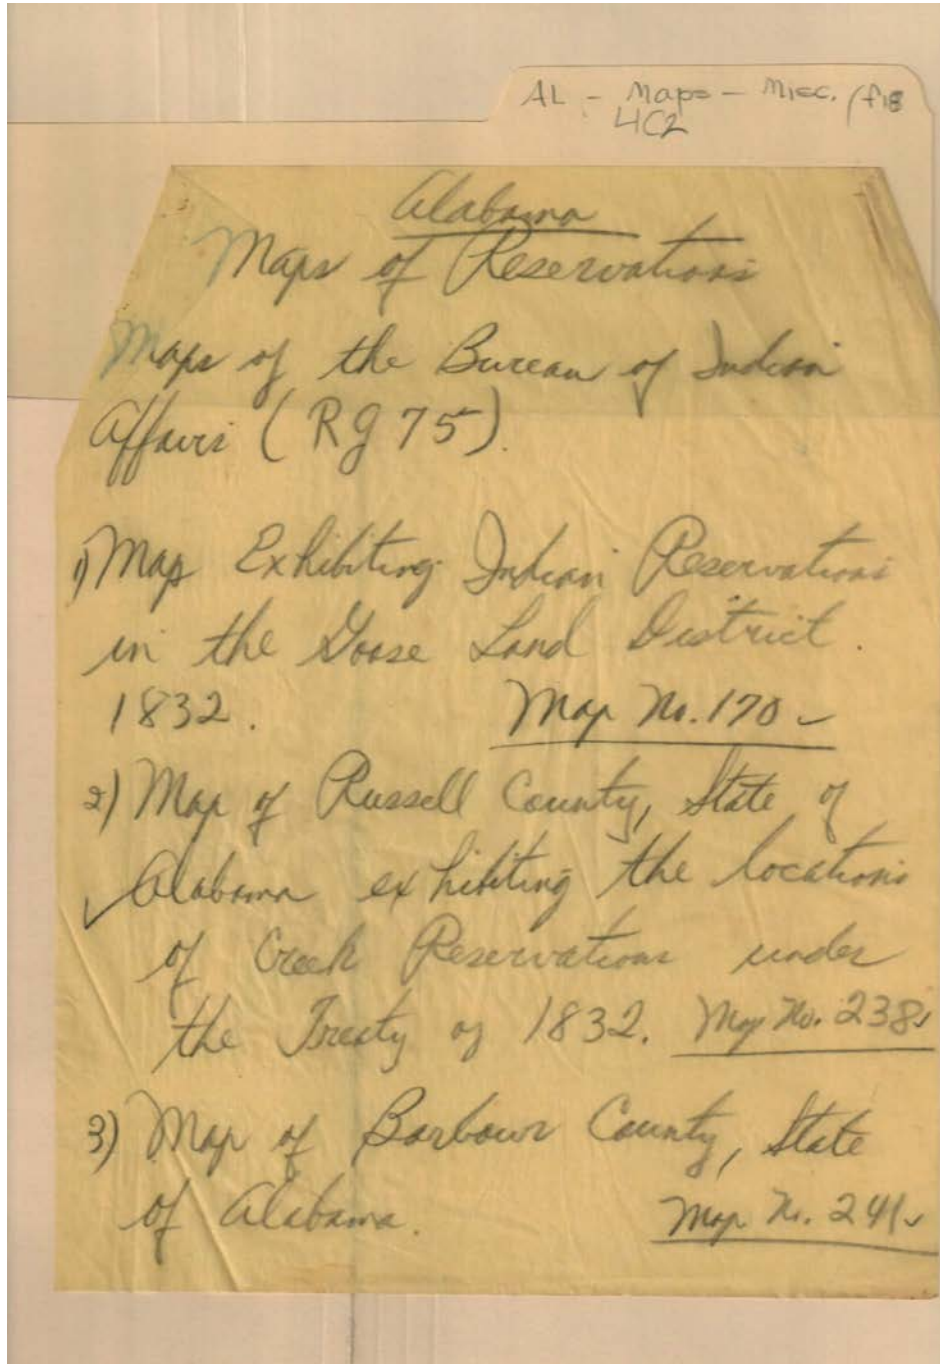 AL - Maps - Misc. (f18
4C2
Alabama
Maps of Reservations
Maps of the Bureau of Indian
Affairs (RG 75).
1) Map Exhibiting Indian Reservations
in the Goose Land District.
1832. Map No. 170 ✓
2) Map of Russell County, State of
✓ Alabama exhibiting the locations
of Creek Reservations under
the Treaty of 1832. Map No. 238 ✓
3) Map of Barbour County, State
of Alabama. Map No. 241 ✓